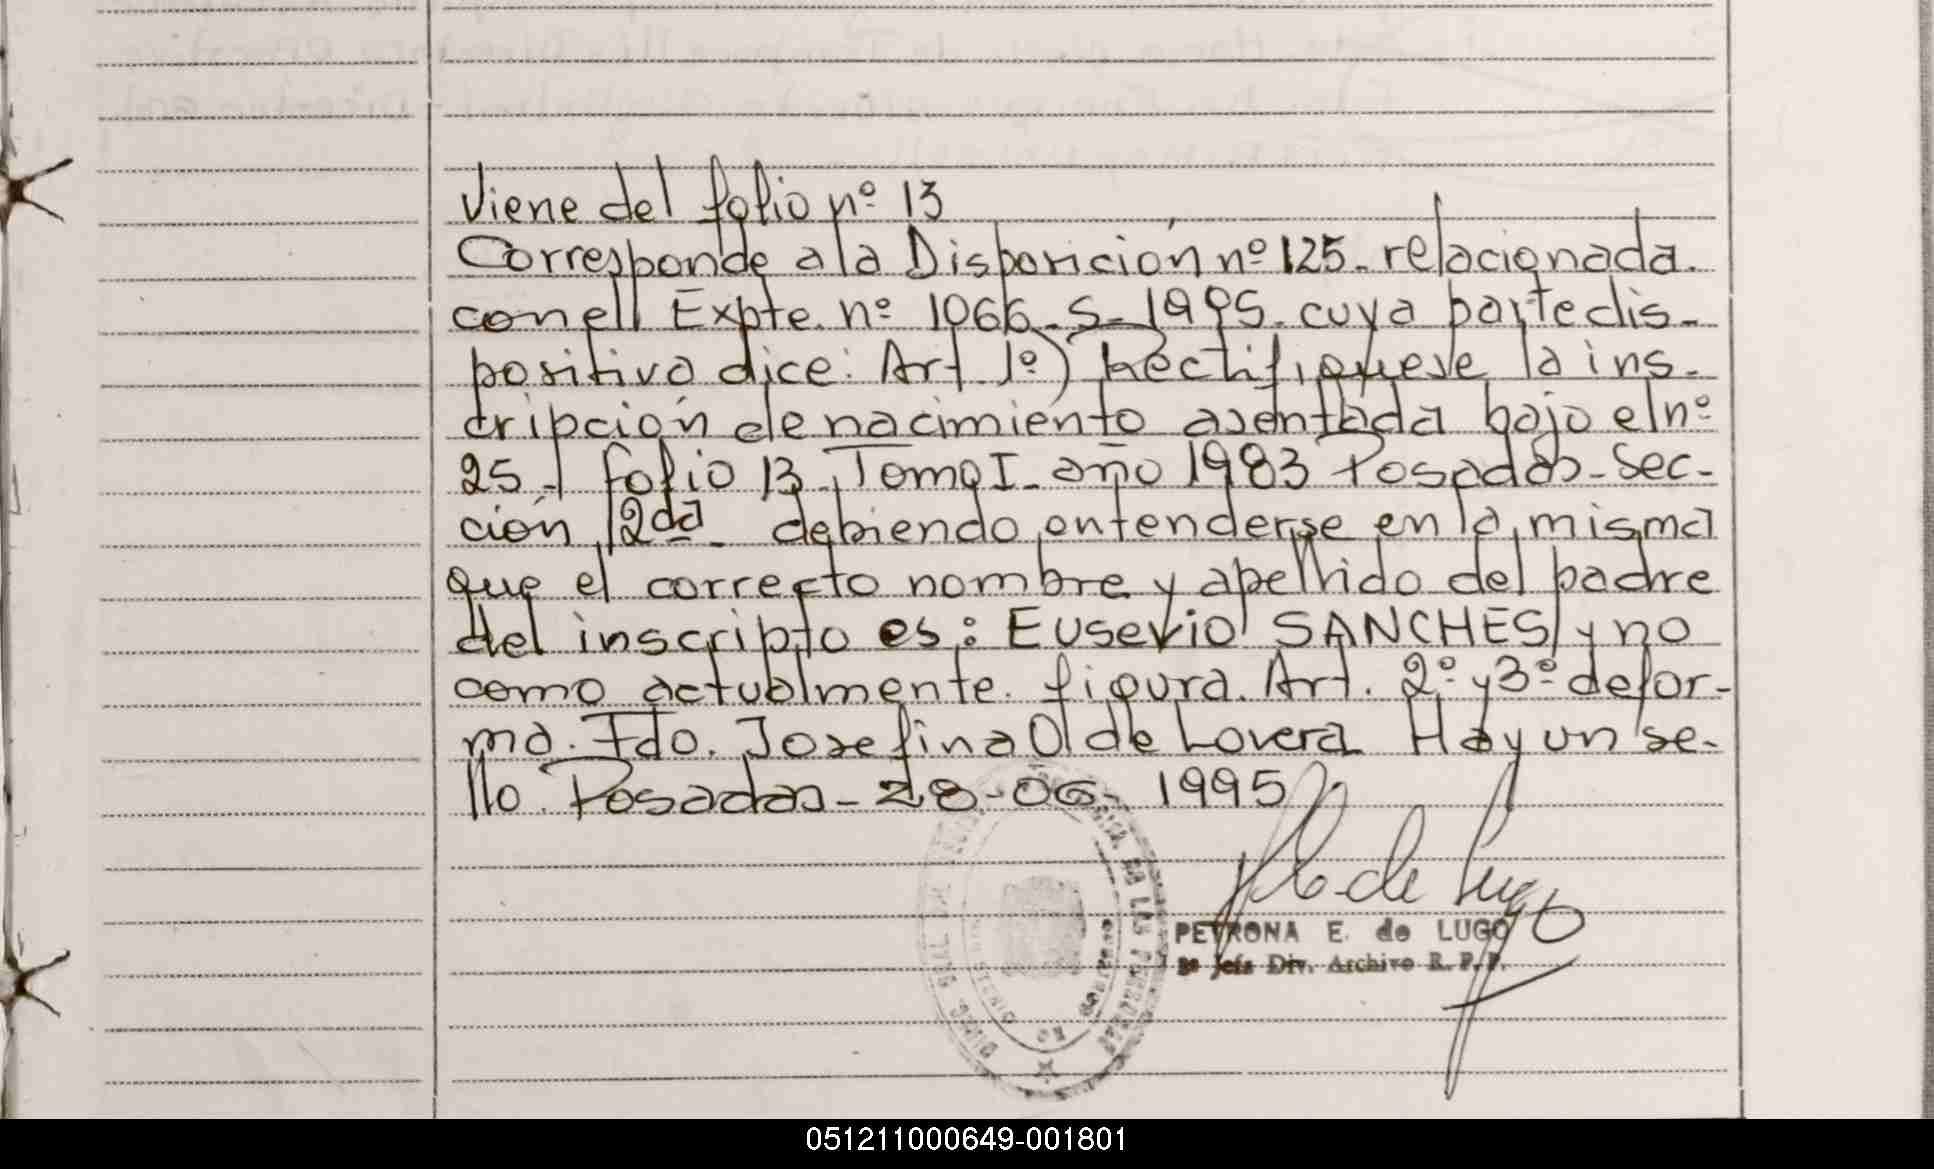 Viene del folio nº 13
Corresponde a la Disposición nº 125. relacionada.
con ell Expte. nº 1066-S-1995. cuya parte dis-
positiva dice: Art. 1º) Rectifiquese la ins-
cripción de nacimiento asentada bajo el nº
25-/ folio 13. Tomo I. año 1983 Posadas-Sec-
ción 2da- debiendo entenderse en la misma
que el correcto nombre y apellido del padre
del inscripto es: Eusevio SANCHES, y no
como actualmente. figura. Art. 2º y 3º de for-
ma. Fdo. Josefina O de Lovera Hay un se-
llo. Posadas-28-06-1995
E de Lugo
PETRONA E. de LUGO
Jefa Div. Archivo R. P. P.
DE LAS PERSONAS
051211000649-001801